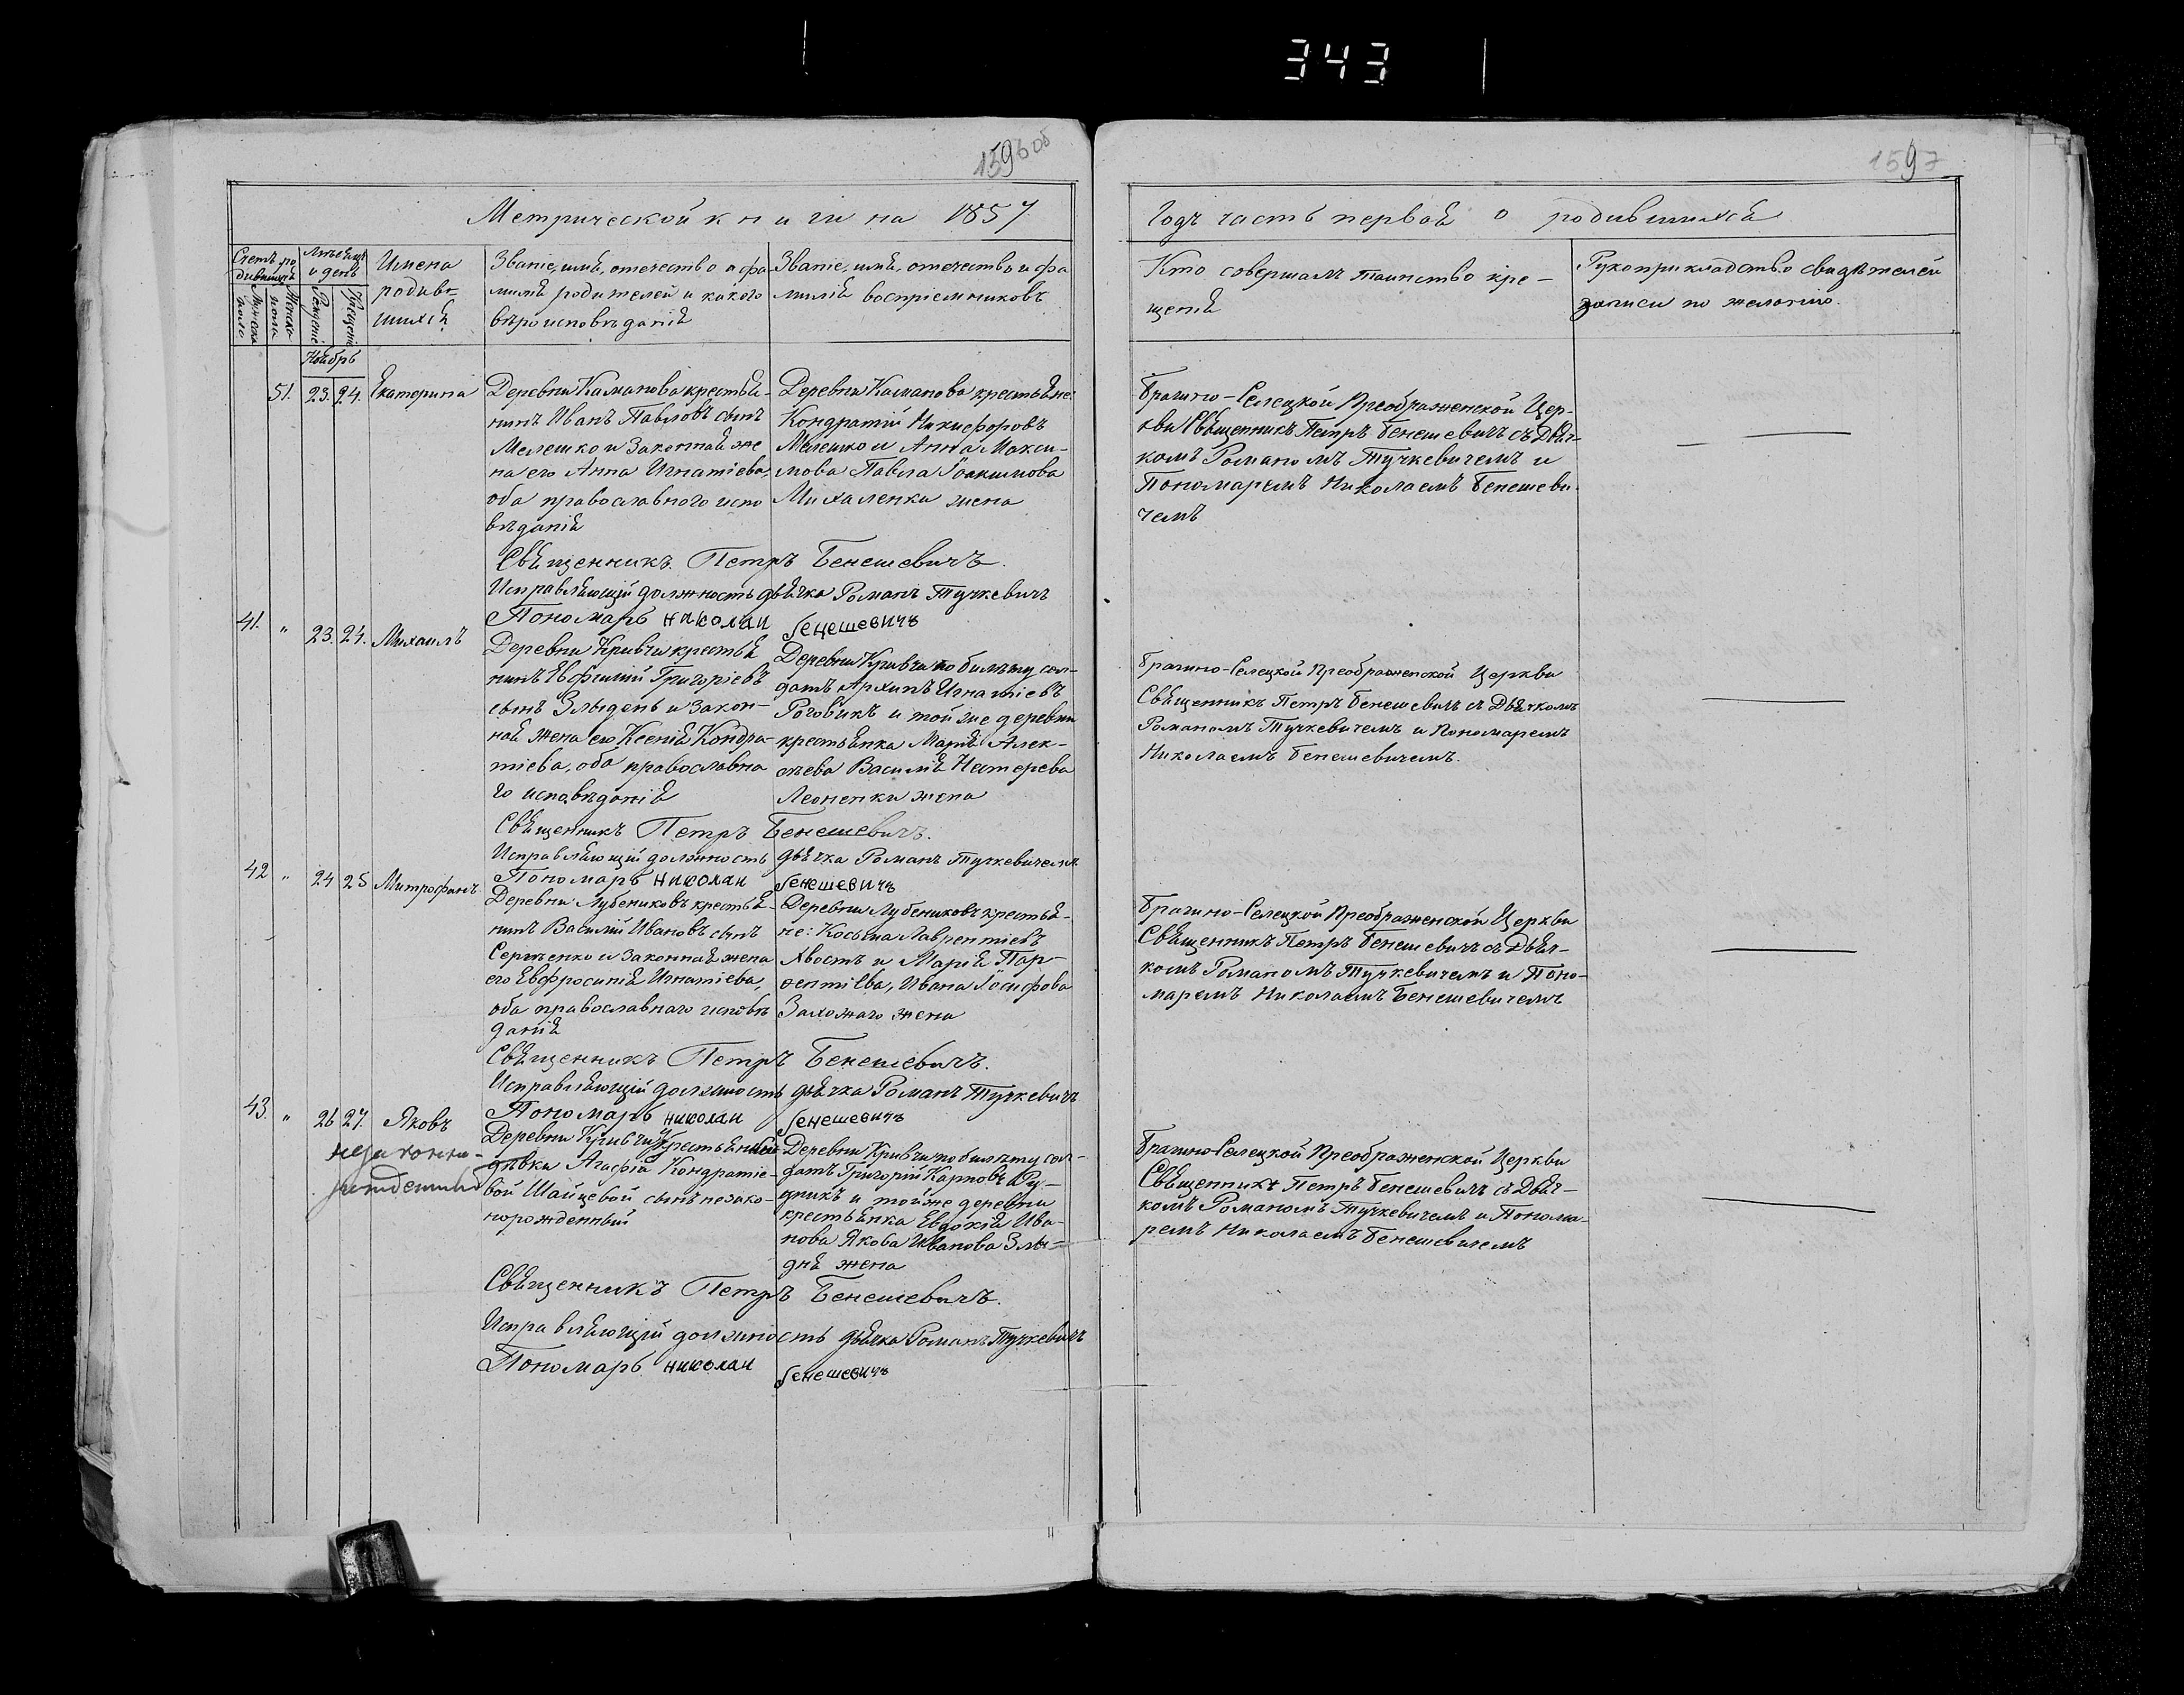 343
1596 об
1597
Метрической книги на 1857
Годъ часть первая о родившихся
Счетъ ро
дившихся
Мужеска
пола
Женска
пола
Мѣсяцъ
и день
Рожденіе
Крещеніе
Имена
родив-
шихся
Званіе, имя, отечество и фа
милія родителей и какого
вѣроисповѣданія
Званіе, имя, отечество и фа
милія воспріемниковъ
Кто совершалъ таинство кре-
щенія
Рукоприкладство свидѣтелей
записи по желанію.
Ноябрь
51. 23. 24. Екатерина
Деревни Каманова крестья-
нинъ Иванъ Павловъ сынъ
Мелешко и Законная же
на его Анна Игнатіева,
оба православного испо
вѣданія
Деревни Каманова крестьяне:
Кондратій Никифоровъ
Мелешко и Анна Макси-
мова Павла Іоакимова
Михаленка жена
Брагино-Селецкой Преображенской Цер-
кви Священникъ Петръ Бенешевичъ съ Дьяч-
комъ Романомъ Тучкевичемъ и
Пономаремъ Николаемъ Бенешеви-
чемъ
Священникъ Петръ Бенешевичъ.
Исправляющій должность дьячка Романъ Тучкевичъ
Пономарь николаи бенешевичъ
41. " 23. 24. Михаилъ
Деревни Кривчи крестья
нинъ Евфимій Григоріевъ
сынъ Злыдень и Закон-
ная жена его Ксенія Кондра-
тіева, оба православна
го исповѣданія
Деревни Кривчи по билѣту сол-
датъ Архипъ Игнатіевъ
Роговикъ и той же деревни
крестьянка Марія Алек-
сѣева Василія Нестерева
Леоненки жена
Брагино-Селецкой Преображенской Церкви
Священникъ Петръ Бенешевичъ съ Дьячкомъ
Романомъ Тучкевичемъ и Пономаремъ
Николаемъ Бенешевичемъ.
Священникъ Петръ Бенешевичъ.
Исправляющій должность дьячка Романъ Тучкевичемъ
Пономарь николаи бенешевичъ
42 " 24 25 Митрофанъ
Деревни Лубениковъ крестья-
нинъ Василій Ивановъ сынъ
Сергіенко и Законная жена
его Евфросинія Игнатіева,
оба православнаго исповѣ
данія
Деревни Лубениковъ крестья-
не: Косьма Лаврентіевъ
Хвостъ и Марія Пар-
фентіева, Ивана Іосифова
Захожаго жена
Брагино-Селецкой Преображенской Церкви
Священникъ Петръ Бенешевичъ съ Дьяч-
комъ Романомъ Тучкевичемъ и Поно-
маремъ Николаемъ Бенешевичемъ
Священникъ Петръ Бенешевичъ.
Исправляющій должность дьячка Романъ Тучкевичъ
Пономарь николаи бенешевичъ
43. " 26 27. Яковъ
незаконно-
рожденный
Деревни Кривчи у крестьянской
дѣвки Агафіи Кондратіе-
вой Шайцевой сынъ незако-
норожденный
Деревни Кривчи по билѣту сол-
датъ Григорій Карповъ Ру-
дникъ и той же деревни
крестьянка Евдокія Ива-
нова Якова Иванова Злы-
дня жена
Брагино-Селецкой Преображенской Церкви
Священникъ Петръ Бенешевичъ съ Дьяч-
комъ Романомъ Тучкевичемъ и Понома-
ремъ Николаемъ Бенешевичемъ
Священникъ Петръ Бенешевичъ.
Исправляющій должность дьячка Романъ Тучкевичъ
Пономарь николаи бенешевичъ